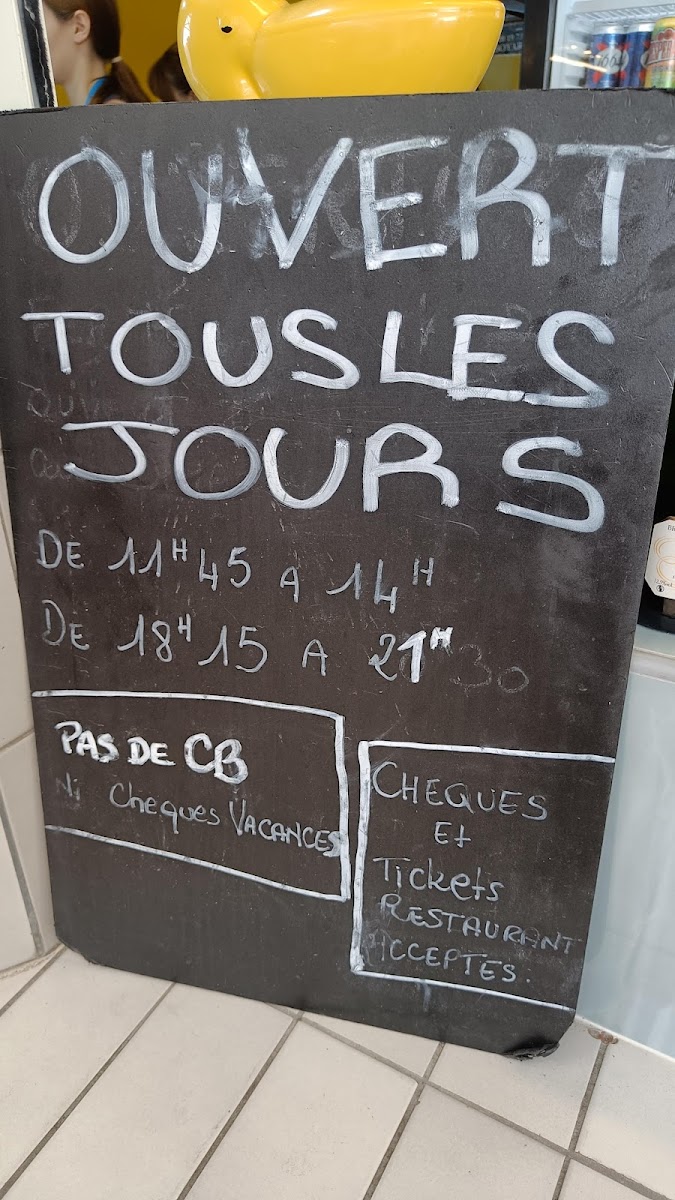 OUVERT
TOUS LES
JOURS
DE 11H45 A 14H
DE 18H15 A 21H30
PAS DE CB
Ni Cheques VACANCES
CHEQUES
Et
Tickets
RESTAURANT
ACCEPTES.